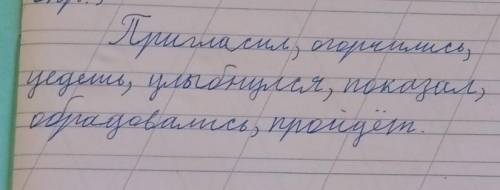 Пригласил, огорчились,
уедешь, улыбнулся, показал,
обрадовались, пройдёт.